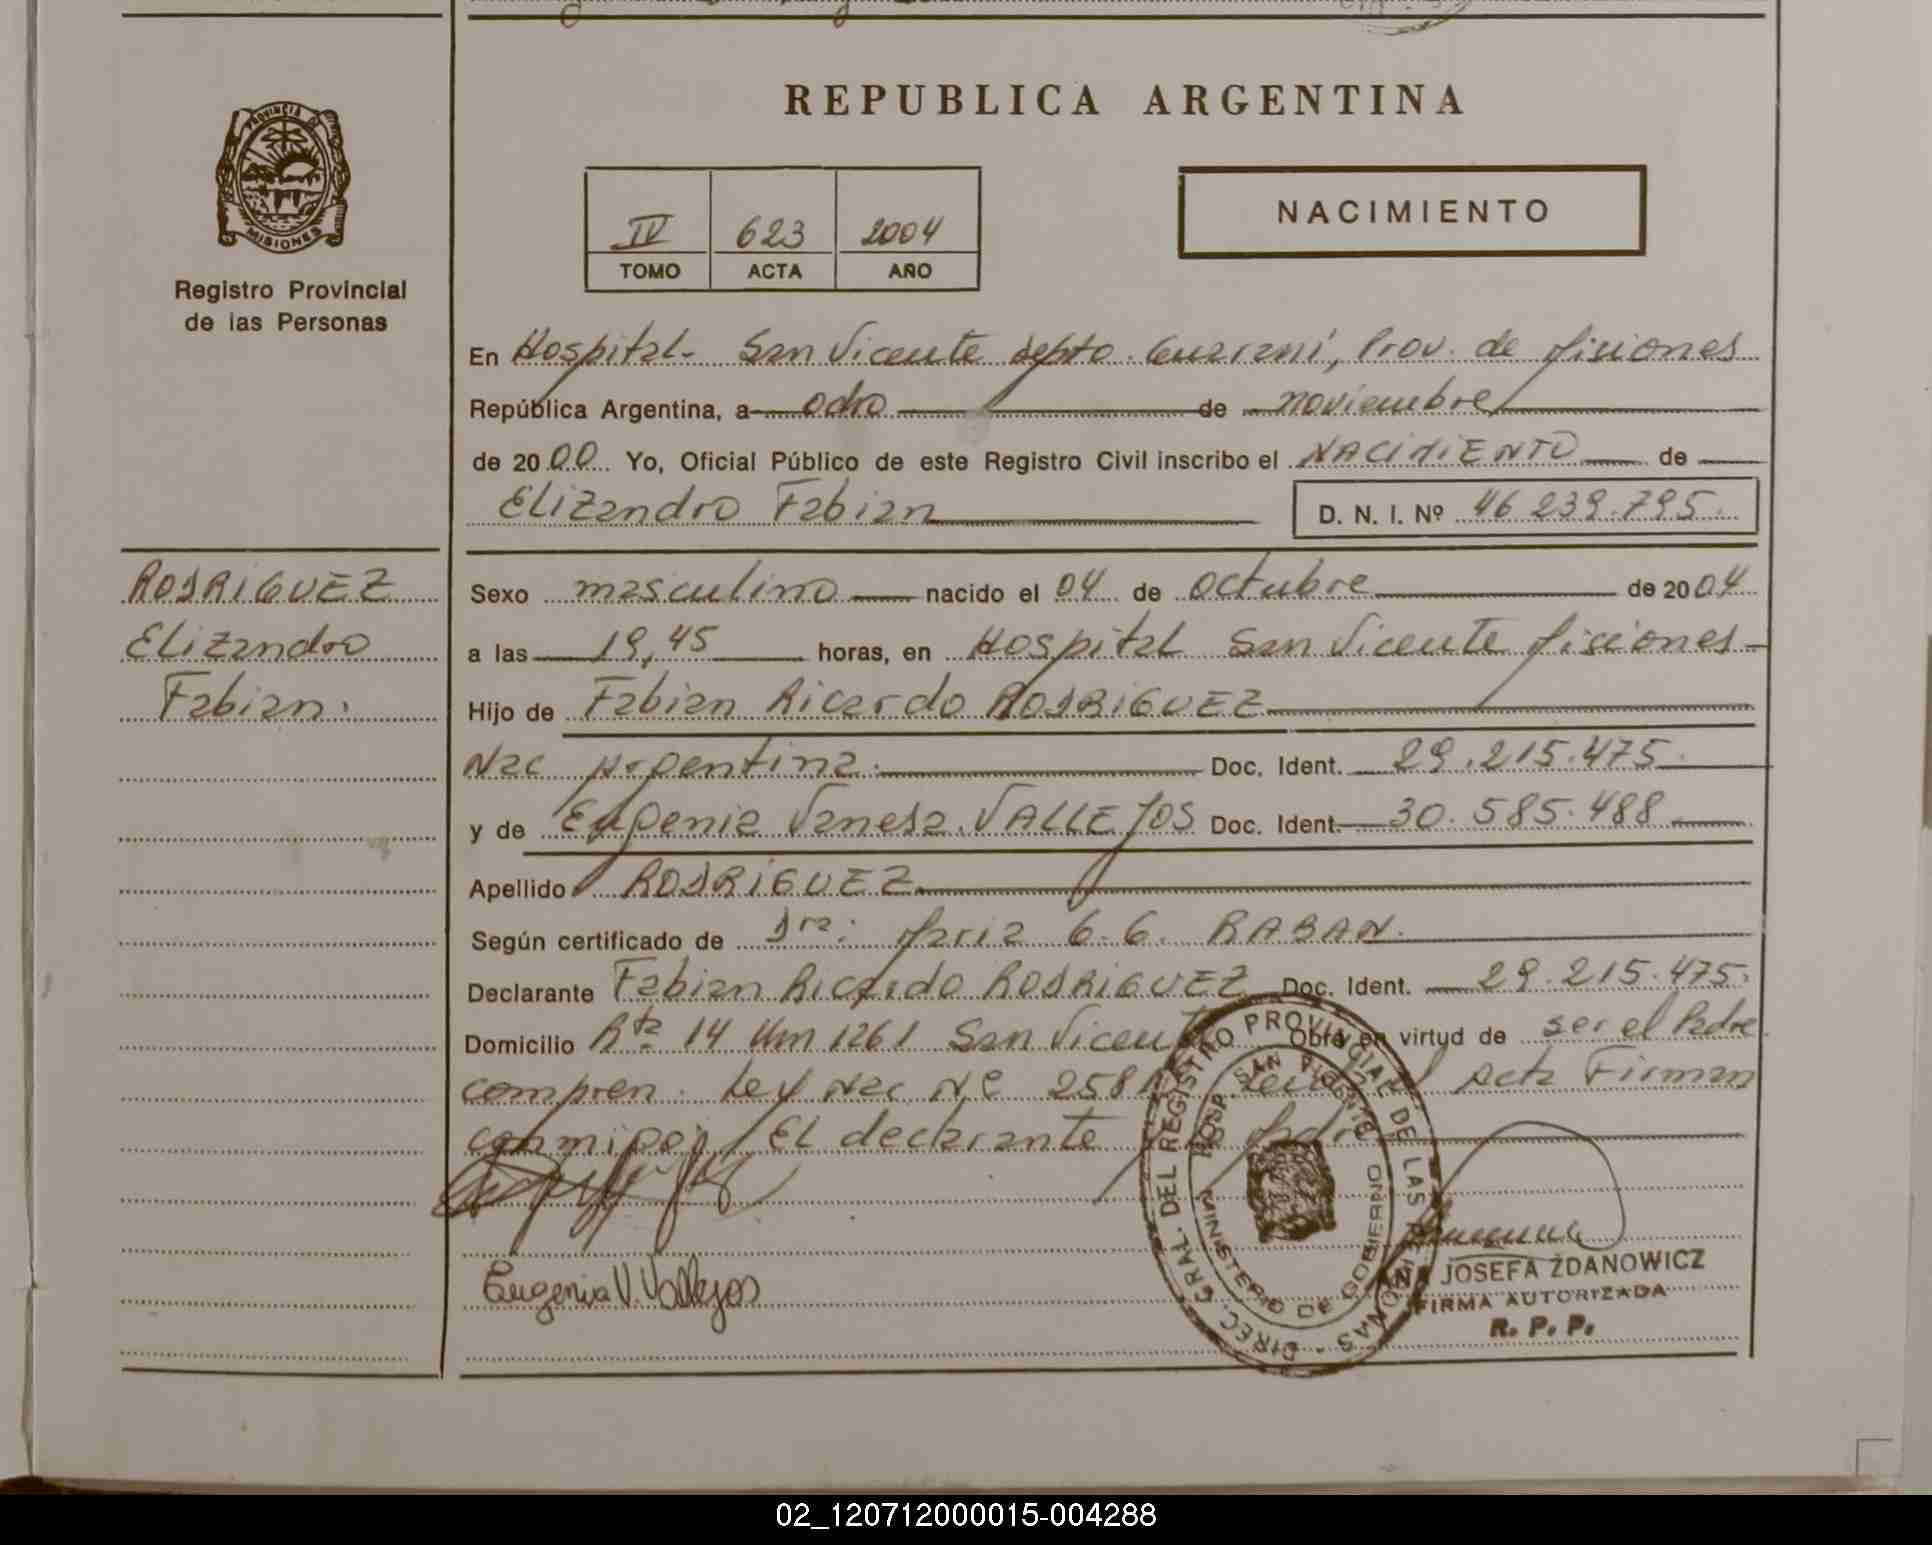 REPUBLICA ARGENTINA
PROVINCIA DE
MISIONES
Registro Provincial
de las Personas
IV 623 2004
TOMO ACTA AÑO
NACIMIENTO
En Hospital San Vicente depto. Guaraní, Prov. de Misiones
República Argentina, a ocho de noviembre
de 2000 Yo, Oficial Público de este Registro Civil inscribo el NACIMIENTO de
Elizandro Fabian
D. N. I. Nº 46 239.795.
RODRIGUEZ
Elizandro
Fabian.
Sexo masculino nacido el 04 de octubre de 2004
a las 19,45 horas, en Hospital San Vicente Misiones
Hijo de Fabian Ricardo RODRIGUEZ
Nac Argentina. Doc. Ident. 29.215.475.
y de Eugenia Vanesa VALLEJOS Doc. Ident. 30.585.488
Apellido RODRIGUEZ
Según certificado de Dra: Maria G.G. RABAN.
Declarante Fabian Ricardo RODRIGUEZ Doc. Ident. 29.215.475.
Domicilio Rta 14 Km 1261 San Vicente Obra en virtud de ser el Padre
compren. Ley Nac Nº el Acta Firman
conmigo, El declarante
Eugenia V. Vallejos
DIREC. GRAL. DEL REGISTRO PROVINCIAL DE LAS PERSONAS
HOSP. SAN VICENTE
MINISTERIO DE GOBIERNO
ANA JOSEFA ZDANOWICZ
FIRMA AUTORIZADA
R. P. P.
02_120712000015-004288